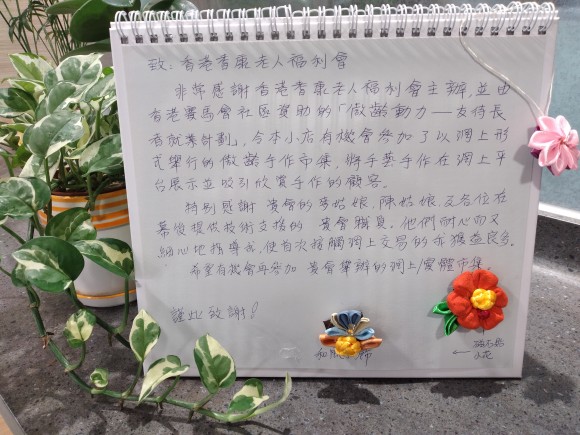 致：香港耆康老人福利會
非常感謝香港耆康老人福利會主辦，並由
香港賽馬會社區資助的「做齡動力——友待長
者就業計劃」，令本小店有機會參加了以網上形
式舉行的做齡手作市集，將手藝手作在網上平
台展示並吸引欣賞手作的顧客。
特別感謝 貴會的麥姑娘、陳姑娘，及各位在
幕後提供技術支援的 貴會職員。他們耐心而又
細心地指導我，使首次接觸網上交易的我獲益良多。
希望有機會再參加 貴會舉辦的網上/實體市集
謹此致謝！
和服 飾
磁石貼
小花